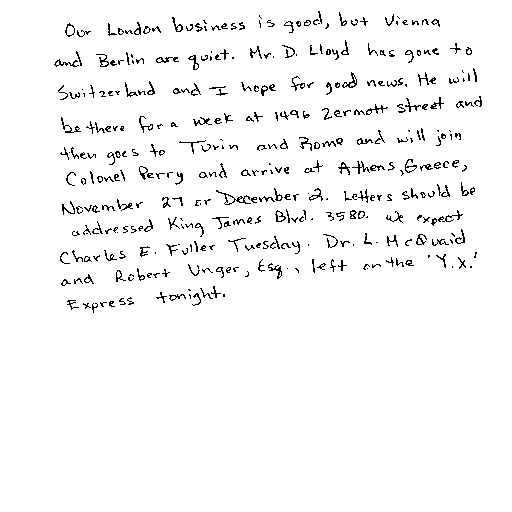 Our London business is good, but Vienna
and Berlin are quiet. Mr. D. Lloyd has gone to
Switzerland and I hope for good news. He will
be there for a week at 1496 Zermott street and
then goes to Turin and Rome and will join
Colonel Perry and arrive at Athens, Greece,
November 27 or December 2. Letters should be
addressed King James Blvd. 3580. We expect
Charles E. Fuller Tuesday. Dr. L. McQuaid
and Robert Unger, Esq., left on the 'Y.X.'
Express tonight.